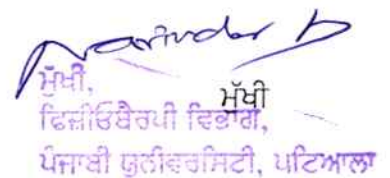 Narinder D
ਮੁੱਖੀ,
ਮੁੱਖੀ
ਫਿਜ਼ੀਓਥੈਰਪੀ ਵਿਭਾਗ,
ਪੰਜਾਬੀ ਯੂਨੀਵਰਸਿਟੀ, ਪਟਿਆਲਾ